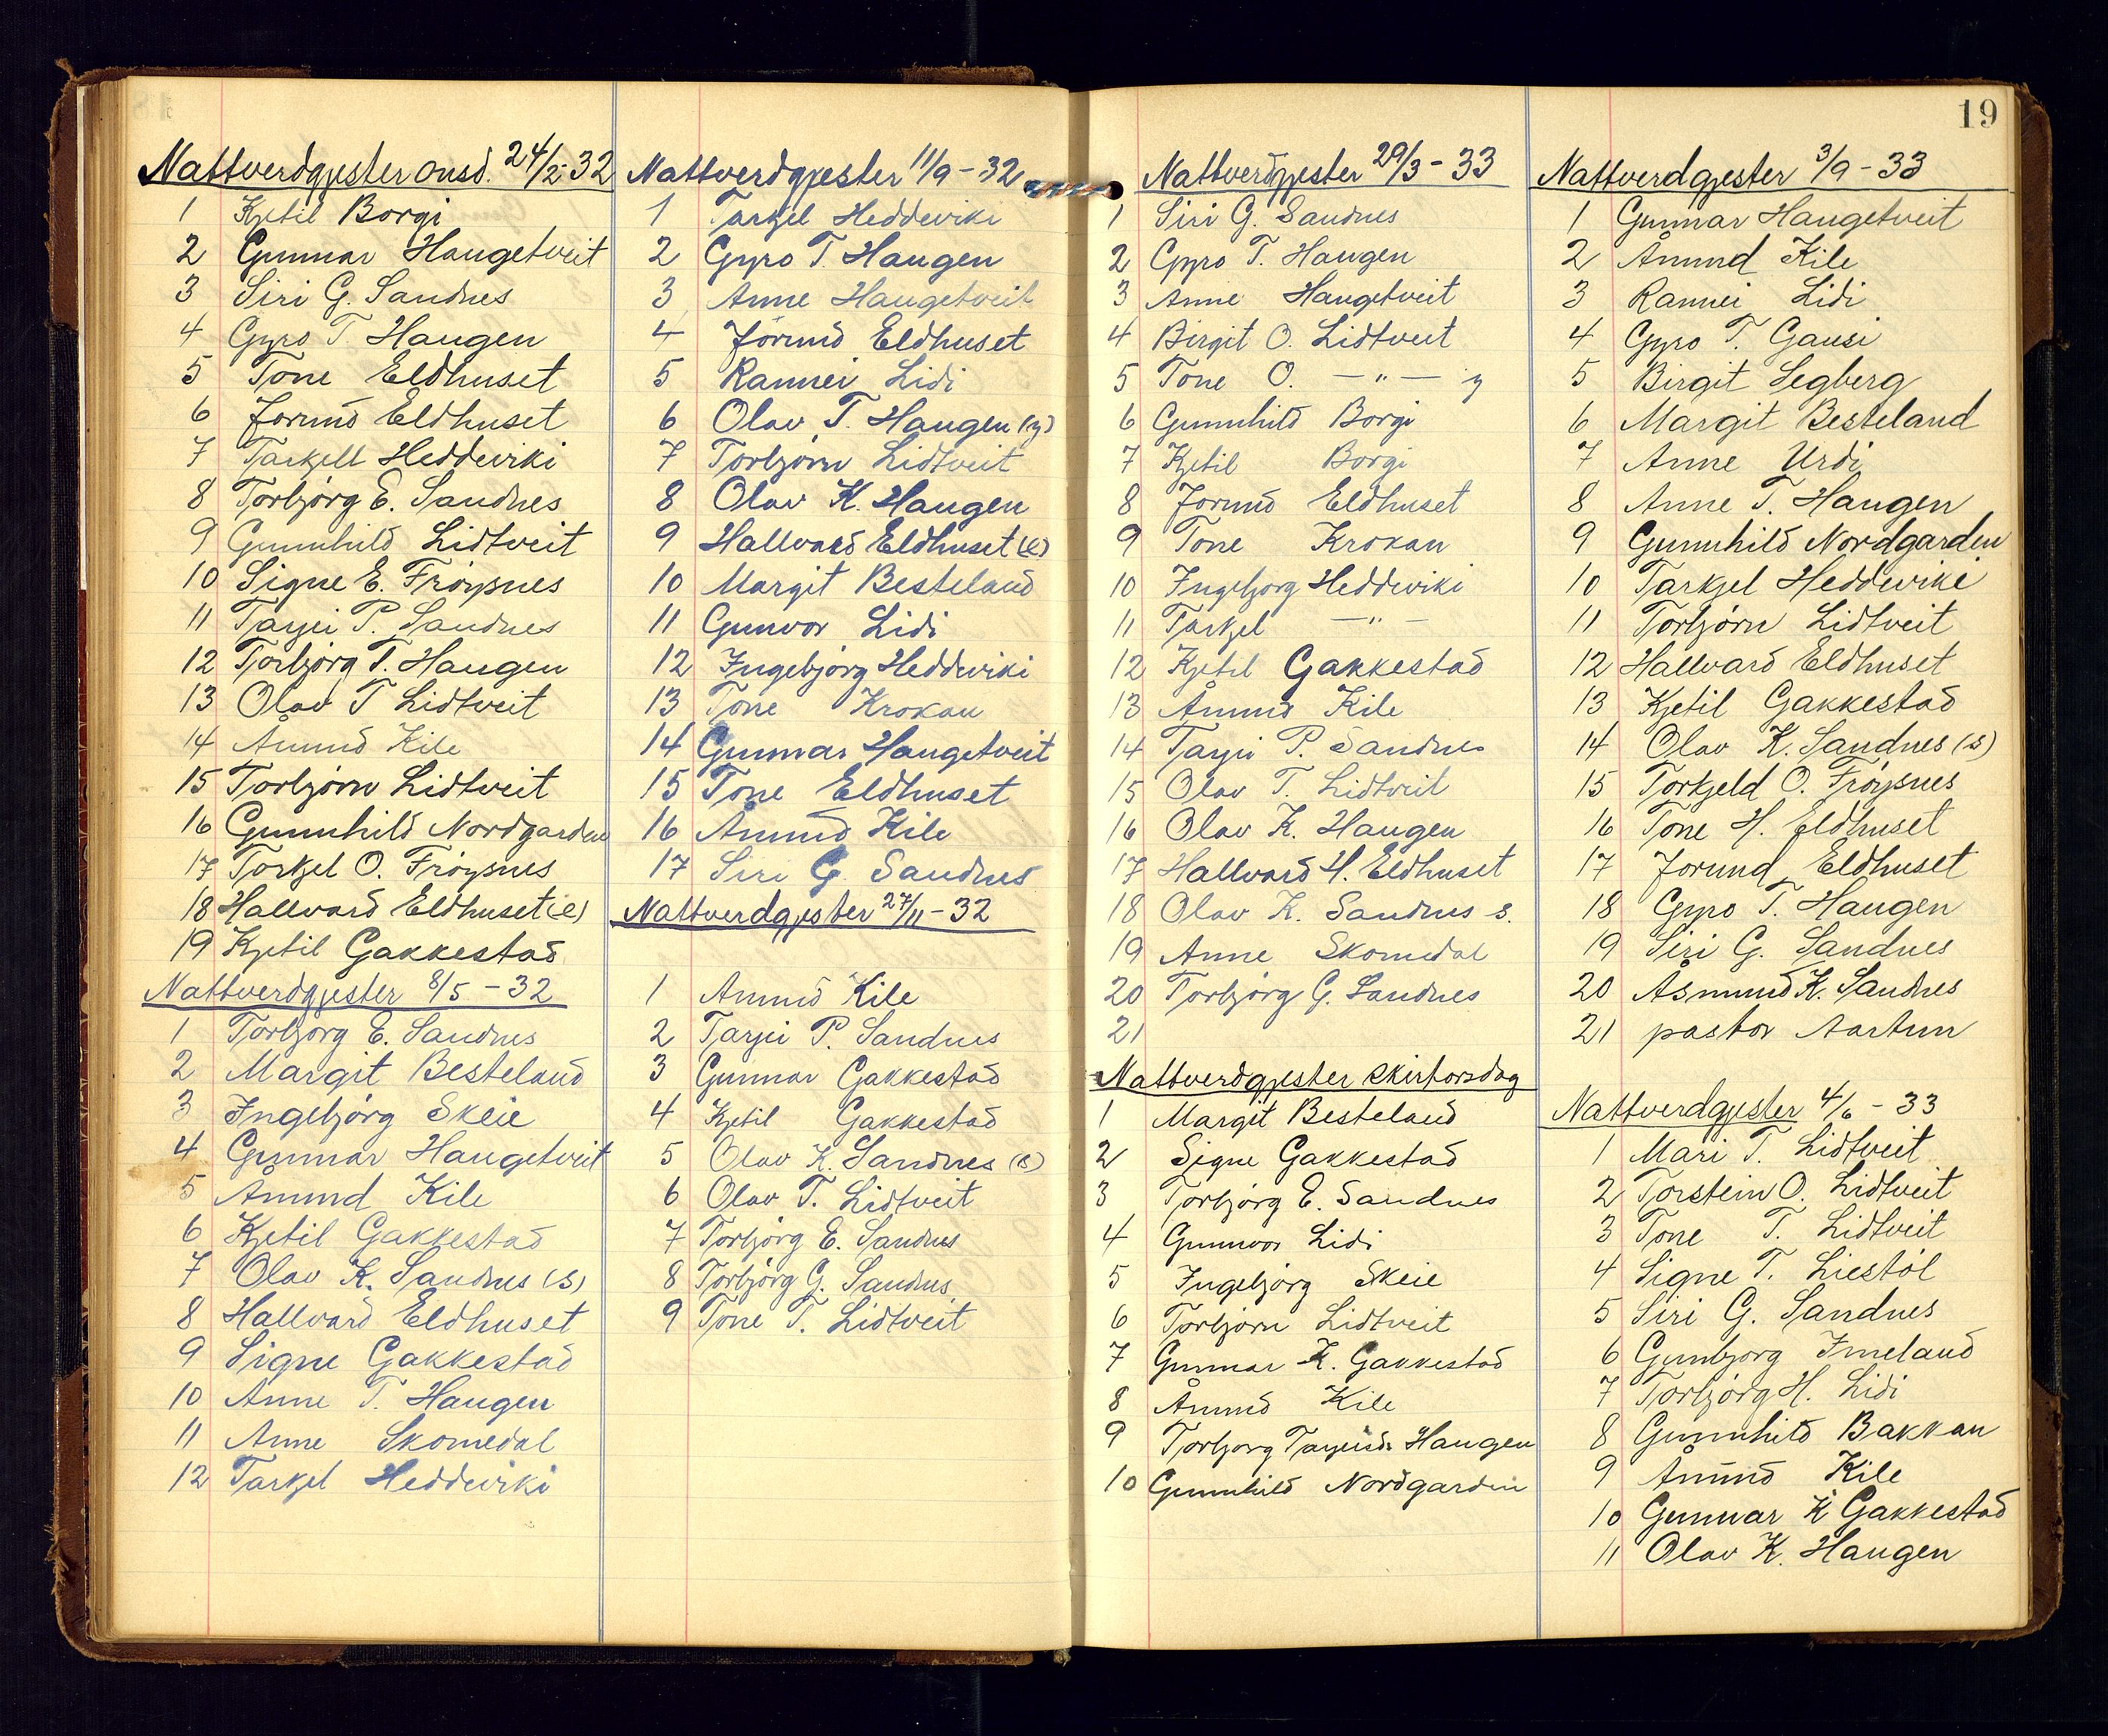 Nattverdgjester onsd. 24/2-32
1 Kjetil Borgi
2 Gunnar Haugetveit
3 Siri G. Sandnes
4 Gyro T Haugen
5 Tone Eldhuset
6 Jorund Eldhuset
7 Tarkjell Heddeviki
8 Torbjørg E. Sandnes
9 Gunnhild Lidtveit
10 Signe E. Frøysnes
11 Tarjei P. Sandnes
12 Torbjørg T. Haugen
13 Olav T Lidtveit
14 Åmund Kile
15 Torbjørn Lidtveit
16 Gunnhild Nordgarden
17 Torkjel O. Frøysnes
18 Hallvard Eldhuset (e)
19 Kjetil Gakkestad
Nattverdgjester 8/5-32
1 Torbjørg E. Sandnes
2 Margit Besteland
3 Ingebjørg Skeie
4 Gunnar Haugetveit
5 Åmund Kile
6 Kjetil Gakkestad
7 Olav K. Sandnes (s)
8 Hallvard Eldhuset
9 Signe Gakkestad
10 Anne T. Haugen
11 Anne Skomedal
12 Tarkjel Heddeviki
Nattverdgjester 11/9-32
1 Tarkjel Heddeviki
2 Gyro T. Haugen
3 Anne Haugetveit
4 Jørund Eldhuset
5 Rannei Lidi
6 Olav T. Haugen (y)
7 Torbjørn Lidtveit
8 Olav K. Haugen
9 Hallvard Eldhuset (e)
10 Margit Besteland
11 Gunvor Lidi
12 Ingebjørg Heddeviki
13 Tone Krokan
14 Gunnar Haugetveit
15 Tone Eldhuset
16 Åmund Kile
17 Siri G. Sandnes
Nattverdgjester 27/11-32
1 Åmund Kile
2 Tarjei P. Sandnes
3 Gunnar Gakkestad
4 Kjetil Gakkestad
5 Olav K. Sandnes (s)
6 Olav T. Lidtveit
7 Torbjørg E. Sandnes
8 Torbjørg G. Sandnes
9 Tone T. Lidtveit
19
Nattverdgjester 29/3-33
1 Siri G. Sandnes
2 Gyro T. Haugen
3 Anne Haugetveit
4 Birgit O. Lidtveit
5 Tone O. — " — y
6 Gunnhild Borgi
7 Kjetil Borgi
8 Jorund Eldhuset
9 Tone Krokan
10 Ingebjørg Heddeviki
11 Tarkjel — " —
12 Kjetil Gakkestad
13 Åmund Kile
14 Tarjei P. Sandnes
15 Olav T. Lidtveit
16 Olav K. Haugen
17 Hallvard H. Eldhuset
18 Olav K. Sandnes s.
19 Anne Skomedal
20 Torbjørg G. Sandnes
21
Nattverdgjester skirtorsdag
1 Margit Besteland
2 Signe Gakkestad
3 Torbjørg E. Sandnes
4 Gunnvor Lidi
5 Ingebjørg Skeie
6 Torbjørn Lidtveit
7 Gunnar K. Gakkestad
8 Åmund Kile
9 Torbjørg Tarjeisd. Haugen
10 Gunnhild Nordgarden
Nattverdgjester 3/9-33
1 Gunnar Haugetveit
2 Åmund Kile
3 Rannei Lidi
4 Gyro T. Gausi
5 Birgit Segberg
6 Margit Besteland
7 Anne Urdi
8 Anne T. Haugen
9 Gunnhild Nordgarden
10 Tarkjel Heddeviki
11 Torbjørn Lidtveit
12 Hallvard Eldhuset
13 Kjetil Gakkestad
14 Olav K. Sandnes (s)
15 Torkjeld O. Frøysnes
16 Tone H. Eldhuset
17 Jorund Eldhuset
18 Gyro T. Haugen
19 Siri G. Sandnes
20 Åsmund K. Sandnes
21 pastor Aartun
Nattverdgjester 4/6-33
1 Mari T. Lidtveit
2 Torstein O. Lidtveit
3 Tone T. Lidtveit
4 Signe T. Liestøl
5 Siri G. Sandnes
6 Gunbjørg Imeland
7 Torbjørg H. Lidi
8 Gunnhild Bakkan
9 Åmund Kile
10 Gunnar K Gakkestad
11 Olav K. Haugen